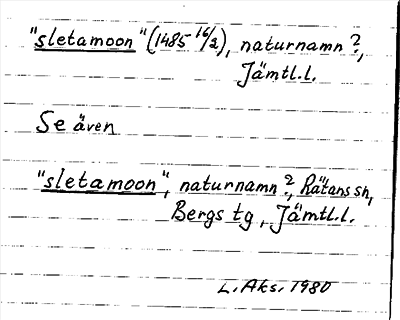 "sletamoon" (1485 16/2), naturnamn?,
Jämtl.l.
Se även
"sletamoon", naturnamn?, Rätans sn,
Bergs tg, Jämtl.l.
L. Aks. 1980